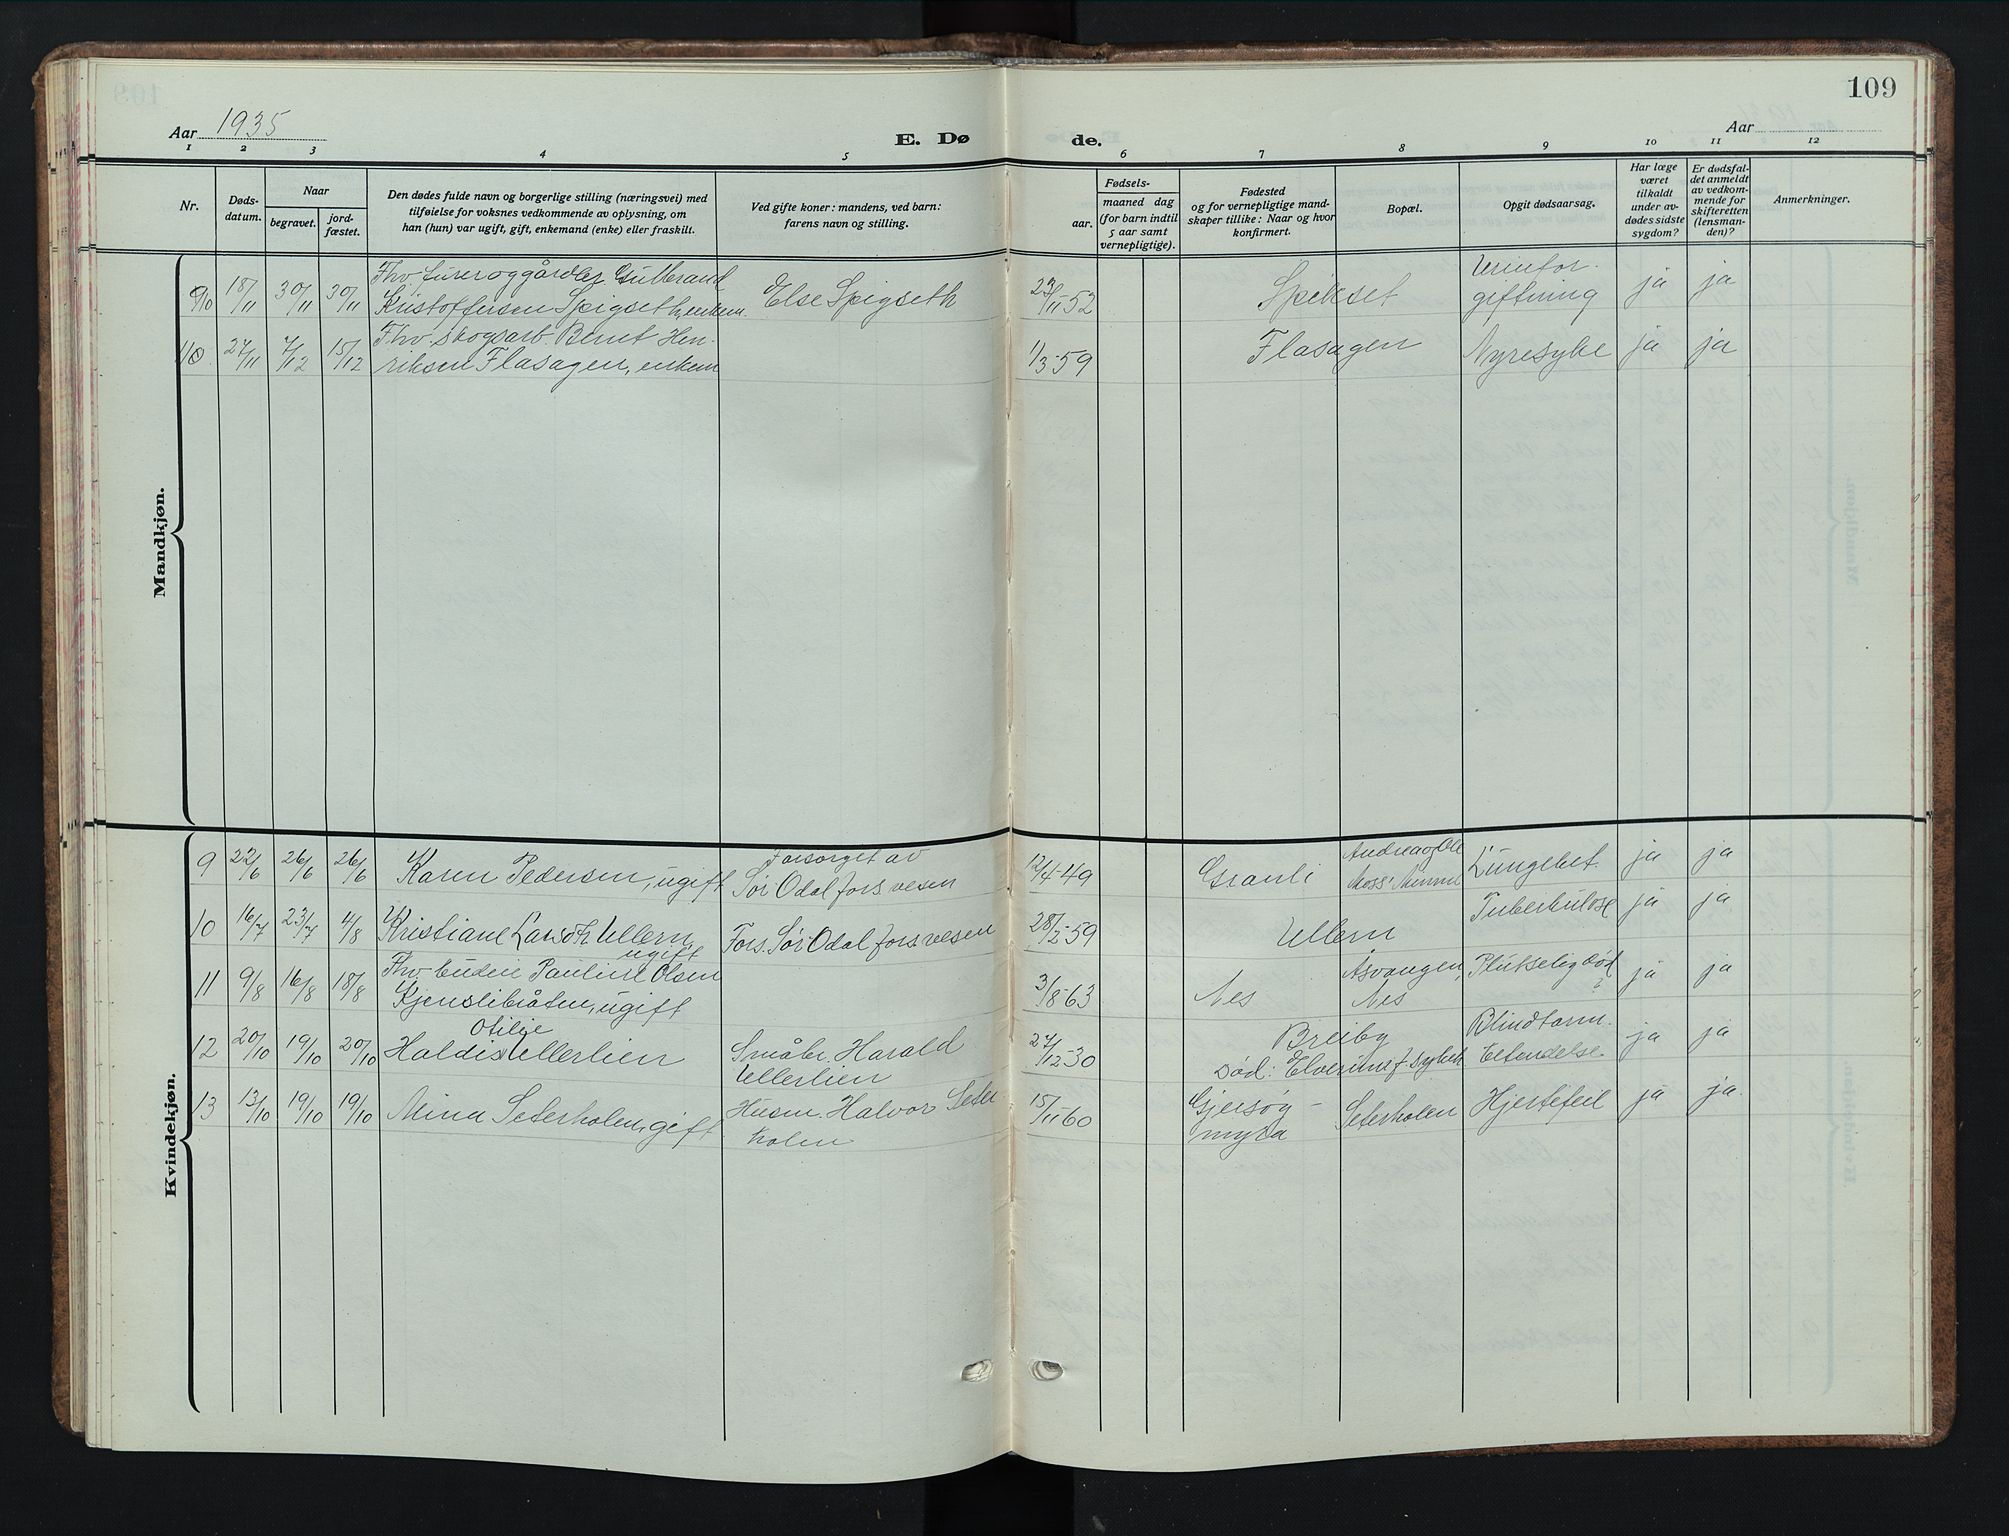 109
Aar 1935
E. Dø
de.
Aar
1 2 3 4 5 6 7 8 9 10 11 12
Nr.
Døds-
datum.
Naar
begravet.
jord-
fæstet.
Den dødes fulde navn og borgerlige stilling (næringsvei) med
tilføielse for voksnes vedkommende av oplysning, om
han (hun) var ugift, gift, enkemand (enke) eller fraskilt.
Ved gifte koner: mandens, ved barn:
farens navn og stilling.
Fødsels-
aar.
maaned dag
(for barn indtil
5 aar samt
vernepligtige).
Fødested
og for vernepligtige mand-
skaper tillike: Naar og hvor
konfirmert.
Bopæl.
Opgit dødsaarsag.
Har læge
været
tilkaldt
under av-
dødes sidste
sygdom?
Er dødsfal-
det anmeldt
av vedkom-
mende for
skifteretten
(lensman-
den)?
Anmerkninger.
Mandkjøn.
18/11 30/11 30/11 Fhv. furer og gårdbr. Gulbrand Else Spigseth 23/11-52 Spikset Urinfor- ja ja
Kristoffersen Spigseth, enkem. giftning
10 27/11 7/12 15/12 Fhv. skogsarb. Bernt Hen- 1/3-59 Flasagen Nyresyke ja ja
riksen Flasagen, enkem
Kvindekjøn.
9 22/6 26/6 26/6 Karen Pedersen, ugift Forsørget av 12/4-49 Granli Lungebet. ja ja
Sør Odal forsvesen
10 16/7 23/7 4/8 Kristiane Ullern, Fors. Sør Odal forsvesen 28/2-59 Ullern Tuberkulose ja ja
ugift
11 9/8 16/8 18/8 Fhv. budeie Pauline Olsen 3/8-63 Nes Åsvangen, Plutselig død ja ja
Kjenslibråten, ugift Nes
12 20/10 19/10 20/10 Haldis Otilie Ullerlien Småbr. Harald 27/12-30 Breiby Blindtarm- ja ja
Ullerlien Død: Elverum f. sykeh betendelse
13 13/10 19/10 19/10 Mina Seterholen, gift Husm. Halvor Seter 15/11-60 Gjersøg- Seterholen Hjertefeil ja ja.
holen myra